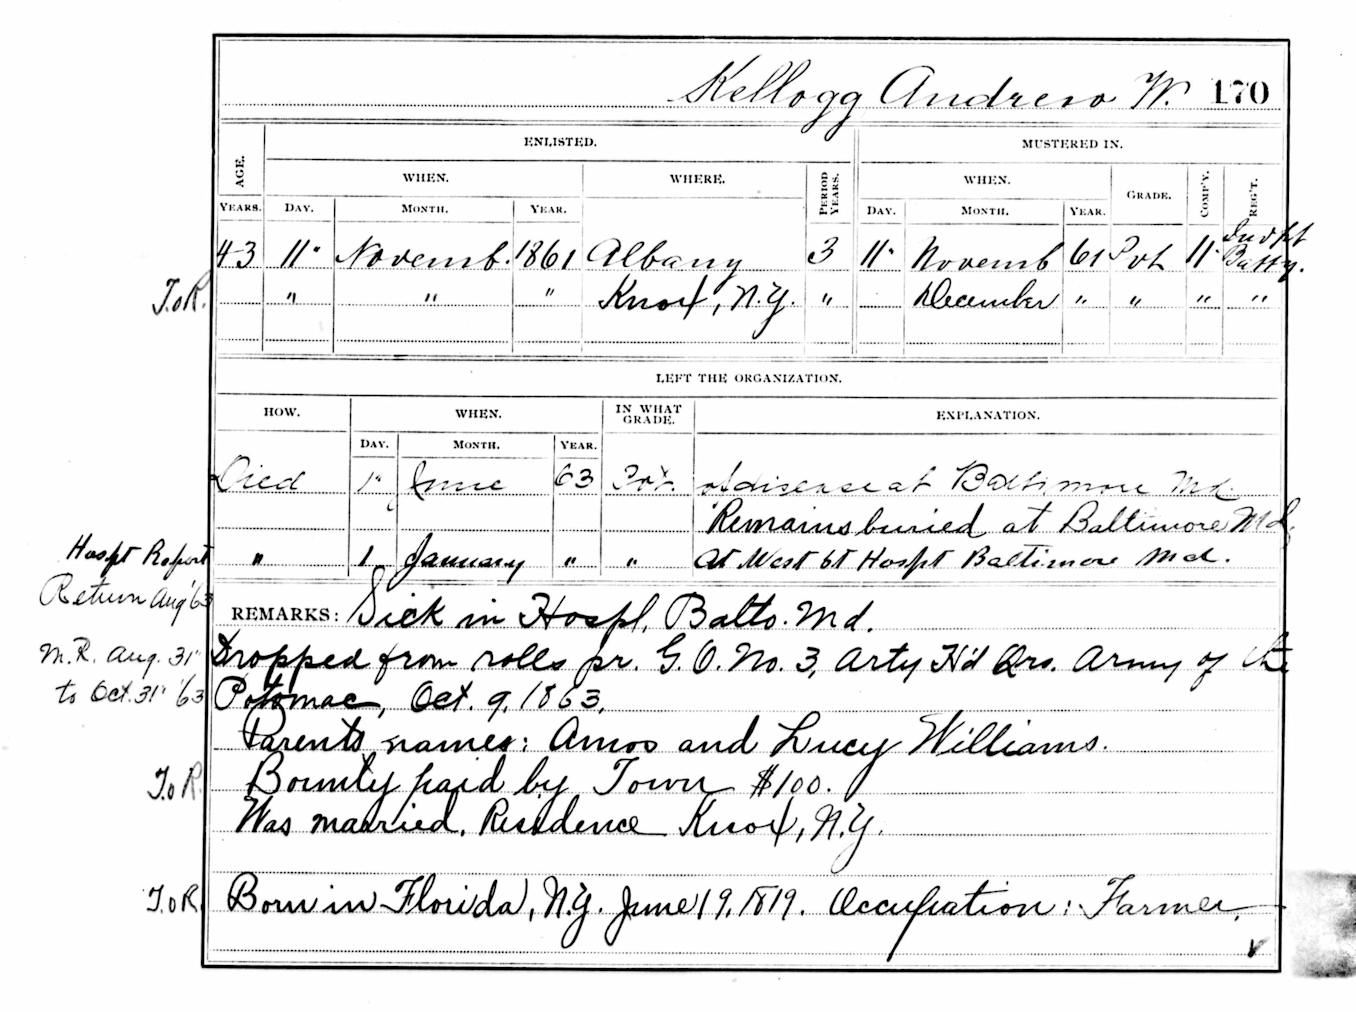 Kellogg Andrew W. 170
ENLISTED. MUSTERED IN.
AGE. WHEN. WHERE. PERIOD YEARS. WHEN. GRADE. COMP'Y. REG'T.
YEARS. DAY. MONTH. YEAR. DAY. MONTH. YEAR.
43 11" Novemb. 1861 Albany 3 11" Novemb 61 Pvt 11" Indpt Batty.
T.o R. " " " Knox, N.Y. " December " " " "
LEFT THE ORGANIZATION.
HOW. WHEN. IN WHAT GRADE. EXPLANATION.
DAY. MONTH. YEAR.
Died 1" June 63 Pvt. of disease at Baltimore Md.
Remains buried at Baltimore Md.
Hospt Report " 1 January " " at West bt Hospt Baltimore Md.
Return Aug '63 REMARKS: Sick in Hospl. Balto. Md.
M.R. Aug. 31" Dropped from rolls pr. G.O. No. 3, Arty H'd Qrs. Army of the
to Oct. 31" '63 Potomac, Oct. 9, 1863.
Parents names: Amos and Lucy Williams.
T.o R. Bounty paid by Town $100.
Was married. Residence Knox, N.Y.
T.o R. Born in Florida, N.Y. June 19, 1819. Occupation: Farmer.